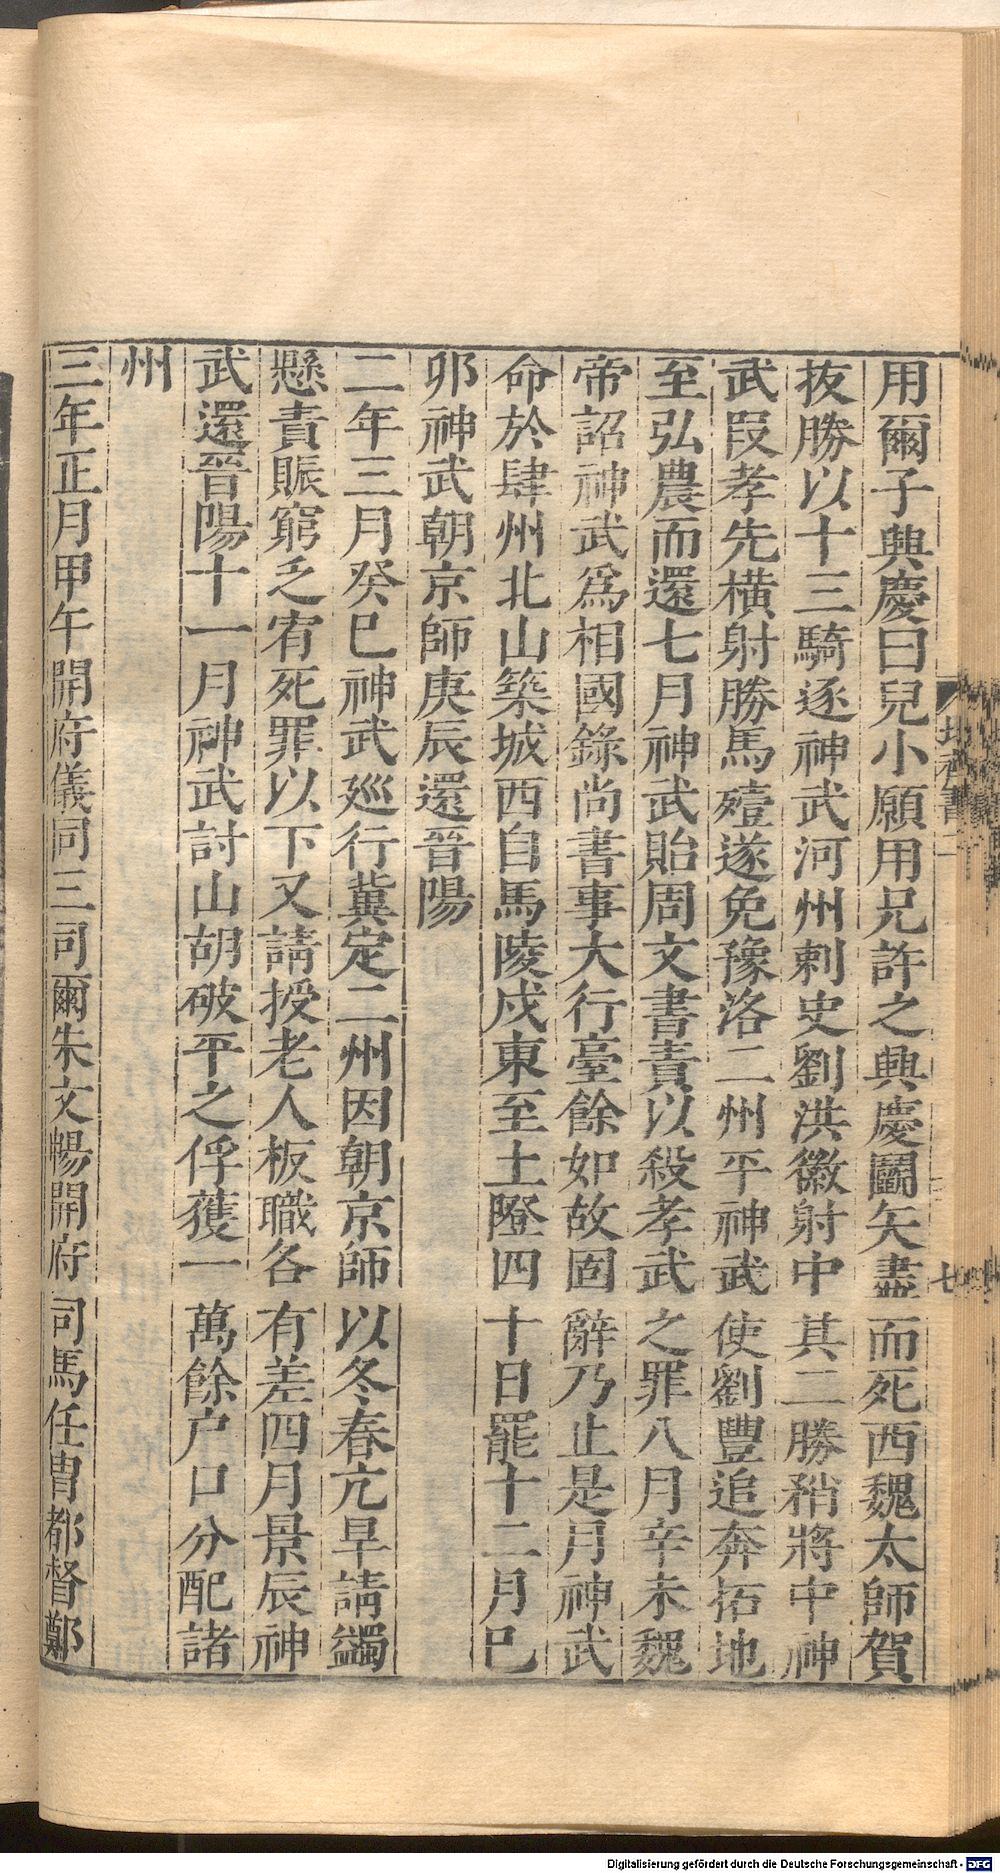 用爾子興慶曰兒小願用兄許之興慶鬬矢盡而死西魏太師賀
拔勝以十三騎逐神武河州刺史劉洪徽射中其二勝矟將中神
武段孝先橫射勝馬殪遂免豫洛二州平神武使劉豐追奔拓地
至弘農而還七月神武貽周文書責以殺孝武之罪八月辛未魏
帝詔神武爲相國錄尚書事大行臺餘如故固辭乃止是月神武
命於肆州北山築城西自馬陵戍東至土隥四十日罷十二月己
卯神武朝京師庚辰還晉陽
二年三月癸巳神武廵行冀定二州因朝京師以冬春亢旱請蠲
懸責賑窮乏宥死罪以下又請授老人板職各有差四月景辰神
武還晉陽十一月神武討山胡破平之俘獲一萬餘戸口分配諸
州
三年正月甲午開府儀同三司爾朱文暢開府司馬任胄都督鄭
北齊書一
七
Digitalisierung gefördert durch die Deutsche Forschungsgemeinschaft - DFG